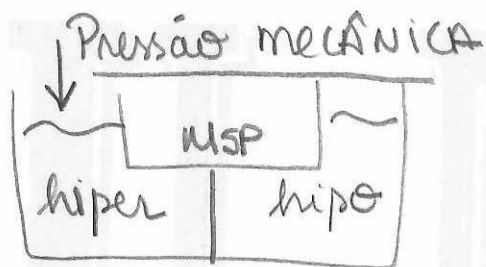 Pressão MECÂNICA
MSP
hiper hipo